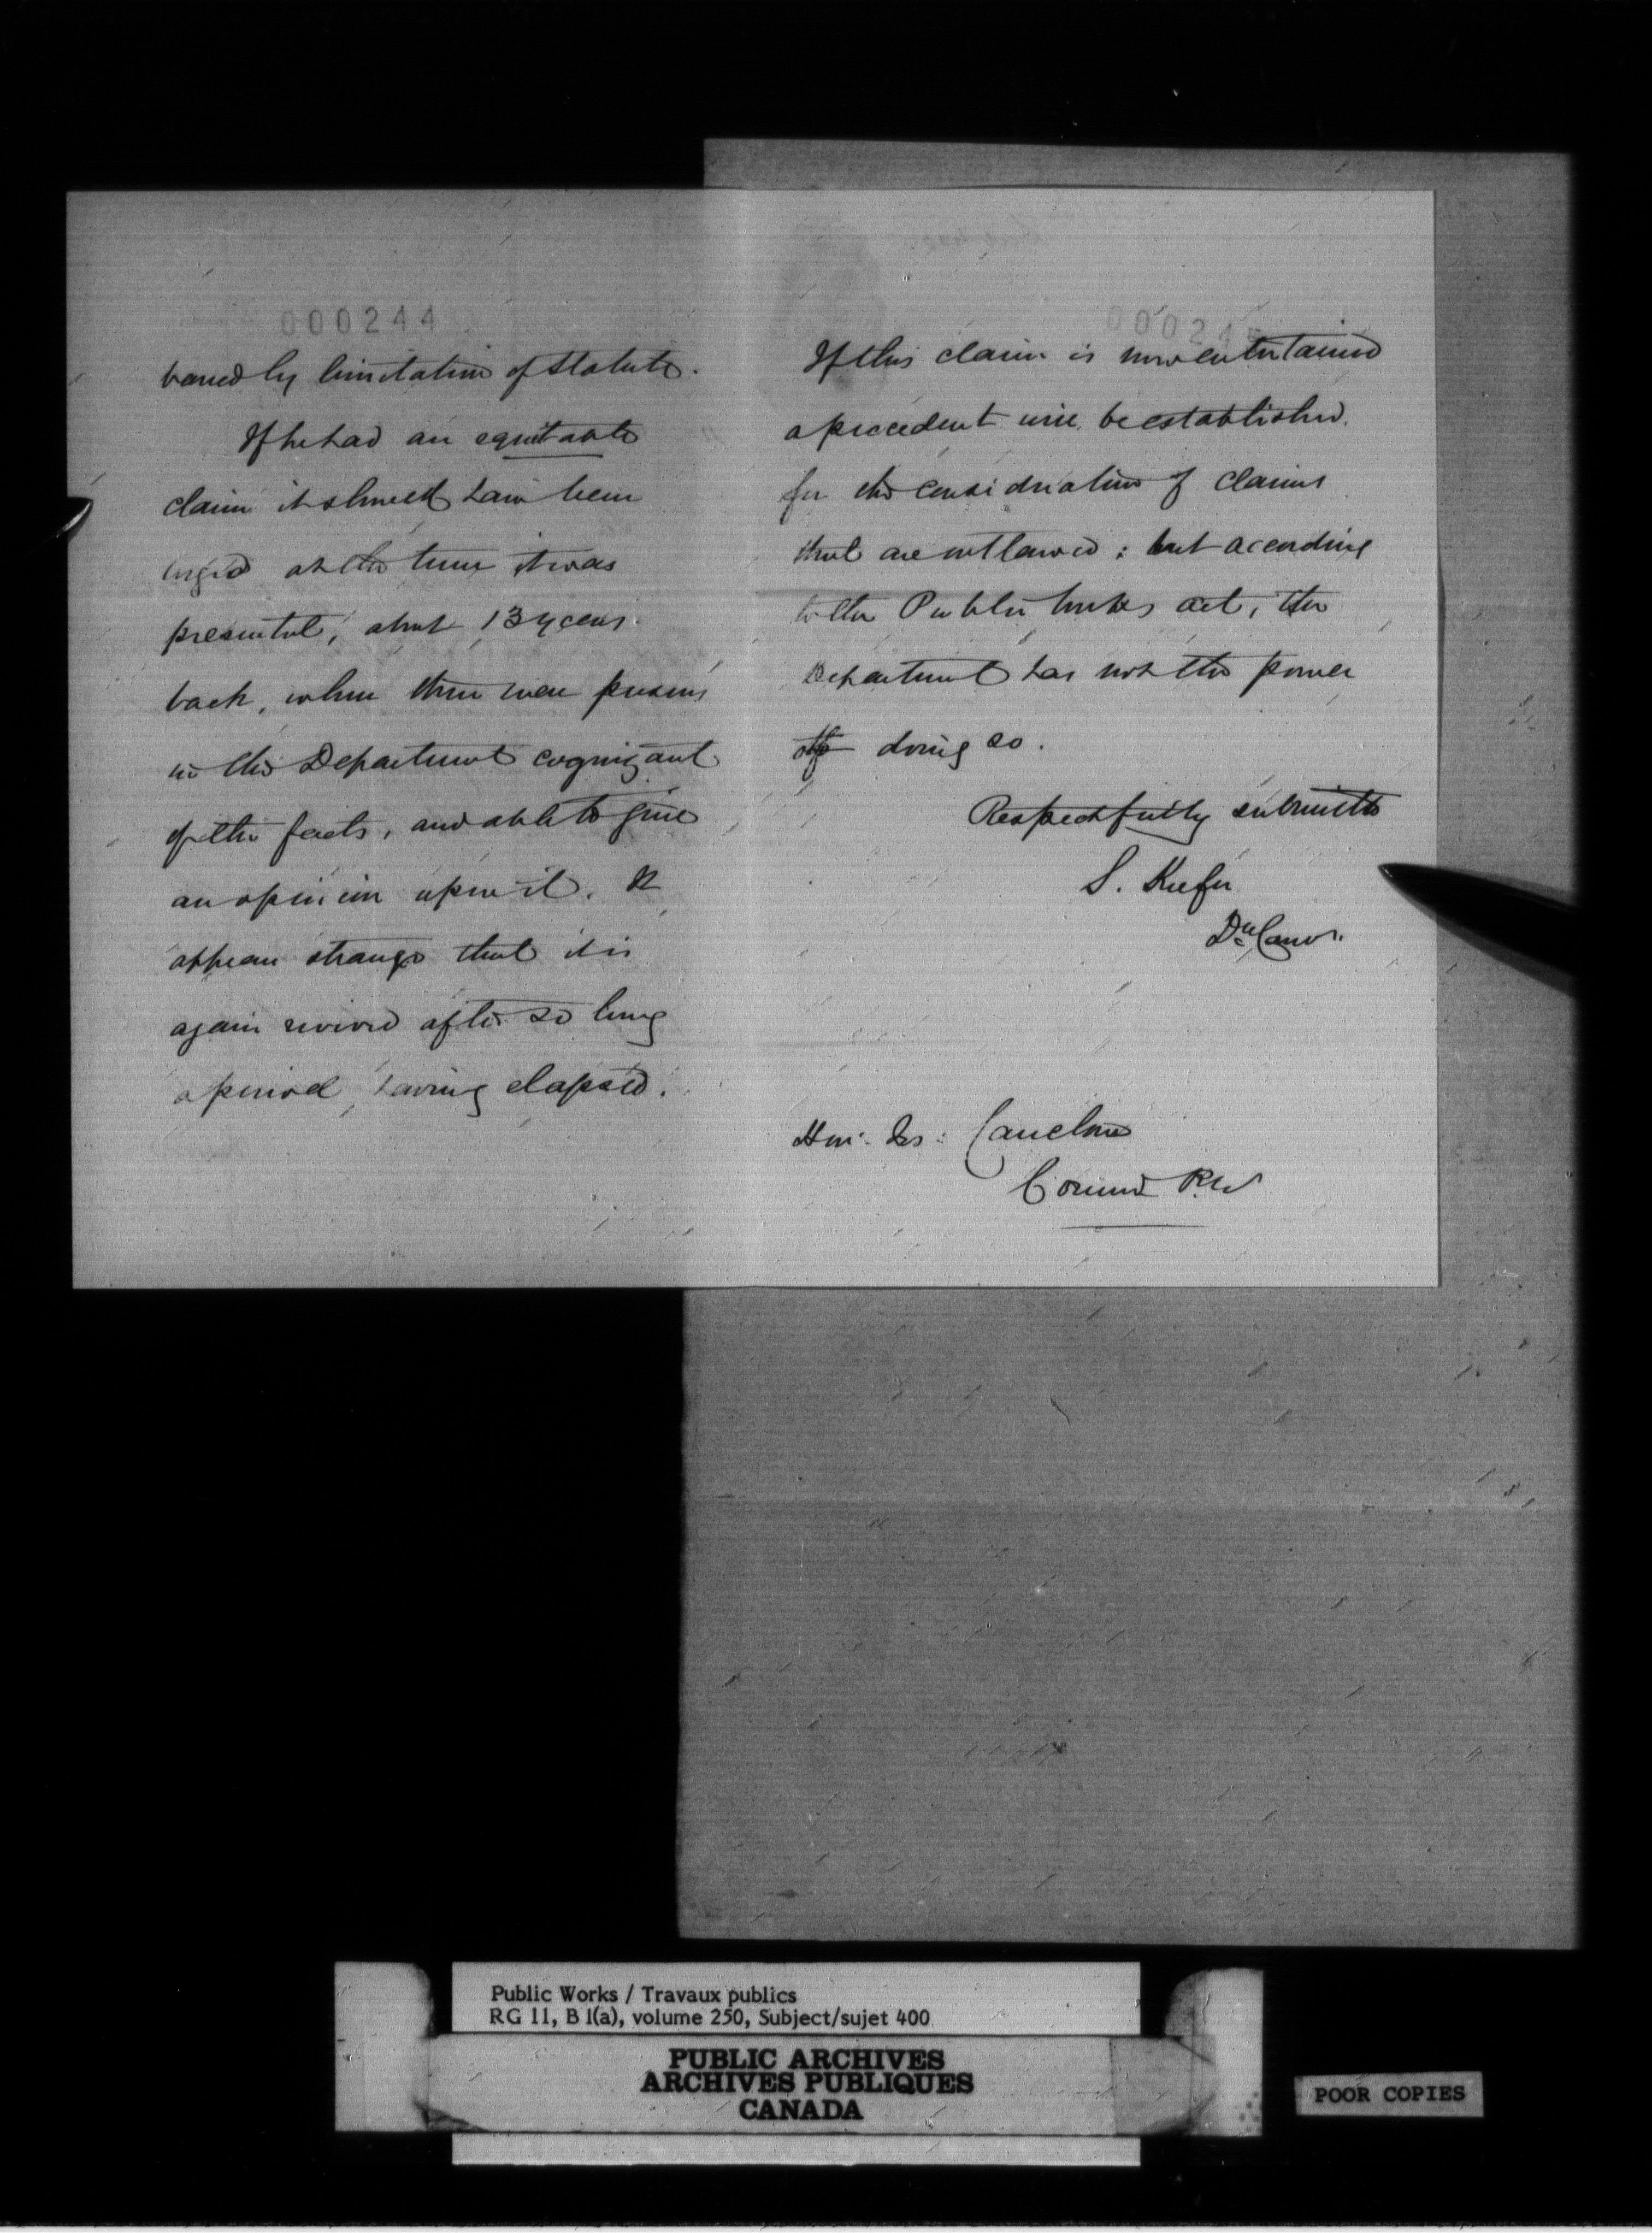 000244
barred by limitation of Statute.
If he had an equitable
claim it should have been
urged at the time it was
presented, about 13 years
back, when there were persons
in the Department cognizant
of the facts, and able to give
an opinion upon it. It
appears strange that it is
again revived after so long
a period having elapsed.
00024
If this claim is now entertained
a precedent will be established
for the consideration of claims
that are outlawed: but according
to the Public Works act, the
Department has not the power
of doing so.
Respectfully submitted
S. Keefer
Dy Comr.
Hon: Jos: Cauchon
Commr P.W
Public Works / Travaux publics
RG 11, B 1(a), volume 250, Subject/sujet 400
PUBLIC ARCHIVES
ARCHIVES PUBLIQUES
CANADA
POOR COPIES